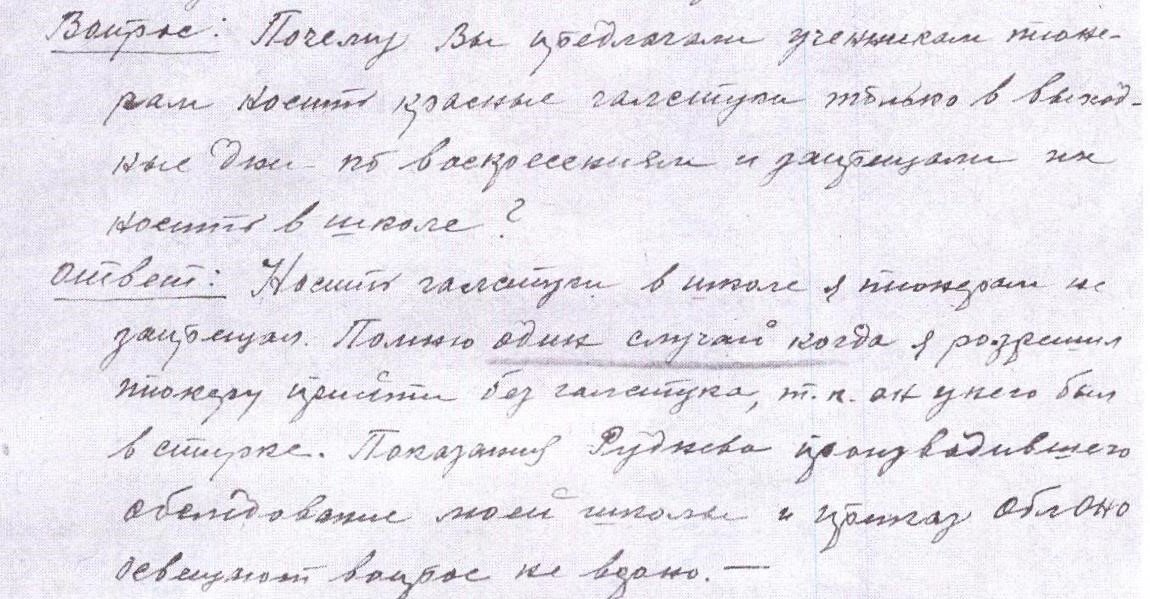 Вопрос: Почему Вы предлагали ученикам пионе-
рам носить красные галстуки только в выход-
ные дни по воскресениям и запрещали их
носить в школе?
Ответ: Носить галстуки в школе я пионерам не
запрещал. Помню один случай когда я розрешил
пионеру прийти без галстука, т.к. он у него был
в стирке. Показания Руднева производившего
обследование моей школы и приказ ОблОНО
освещают вопрос не верно. —